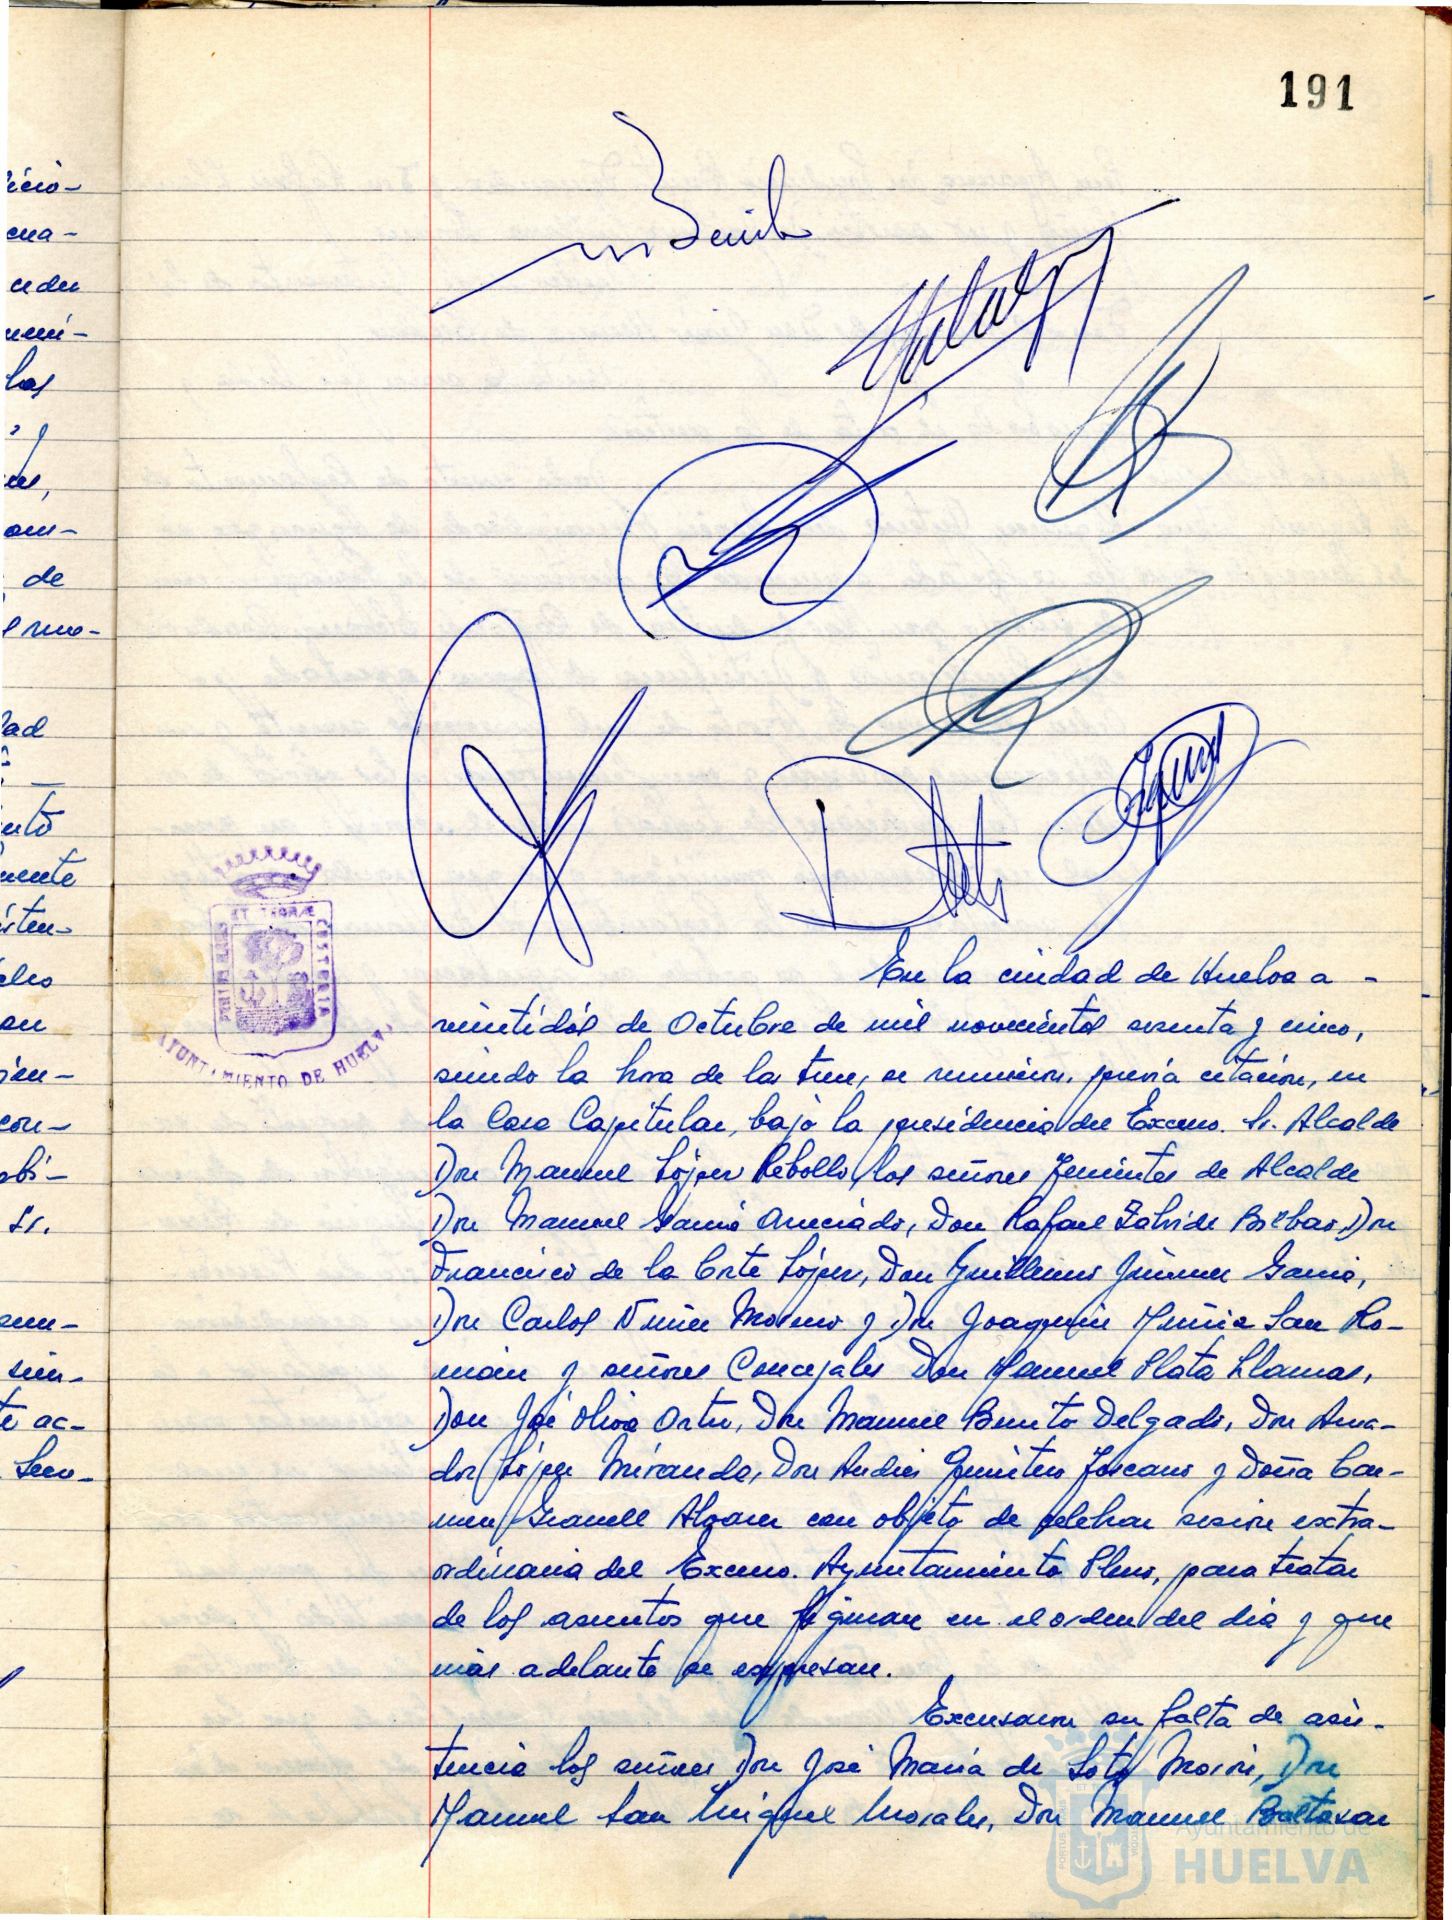 191
En la ciudad de Huelva a -
veintidós de Octubre de mil novecientos sesenta y cinco,
siendo la hora de las trece, se reunieron, previa citación, en
la Casa Capitular, bajo la presidencia del Excmo. Sr. Alcalde
Don Manuel López Rebollo, los señores Tenientes de Alcalde
Don Manuel García Don Rafael Bilbao, Don
Francisco de la Corte López, Don Guillermo Jiménez García,
Don Carlos Núñez Moreno y Don Joaquín San Ro-
mán y señores Concejales Don Manuel Plata Llamas,
Don José Oliva Don Manuel Benito Delgado, Don Ama-
dor López Miranda, Don Andrés Quintero Toscano y Doña Car-
men Granell Alvarez con objeto de celebrar sesión extra-
ordinaria del Excmo. Ayuntamiento Pleno, para tratar
de los asuntos que figuran en el orden del día y que
más adelante se expresan.
Excusaron su falta de asis-
tencia los señores Don José María de Soto Don
Manuel San Miguel Morales, Don Manuel Baltasar
AYUNTAMIENTO DE HUELVA
Ayuntamiento de
HUELVA
icio-
cua-
las
de
dad
mente
con-
Sr.
te ac-